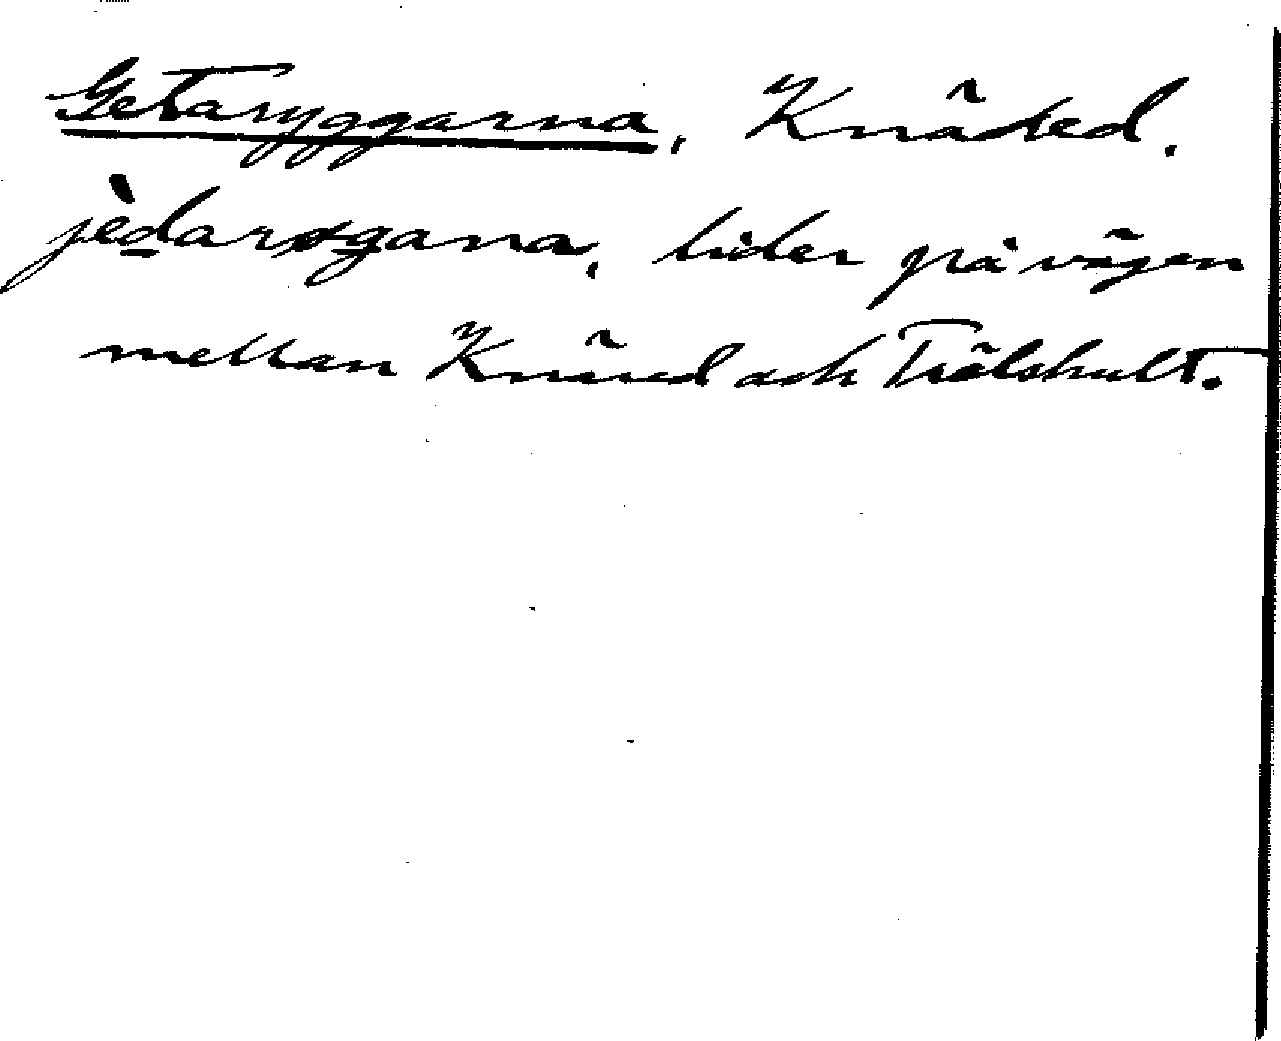 Getaryggarna, Knäred.
jèdarøgana, lider på vägen
mellan Knäred och Trälshult.